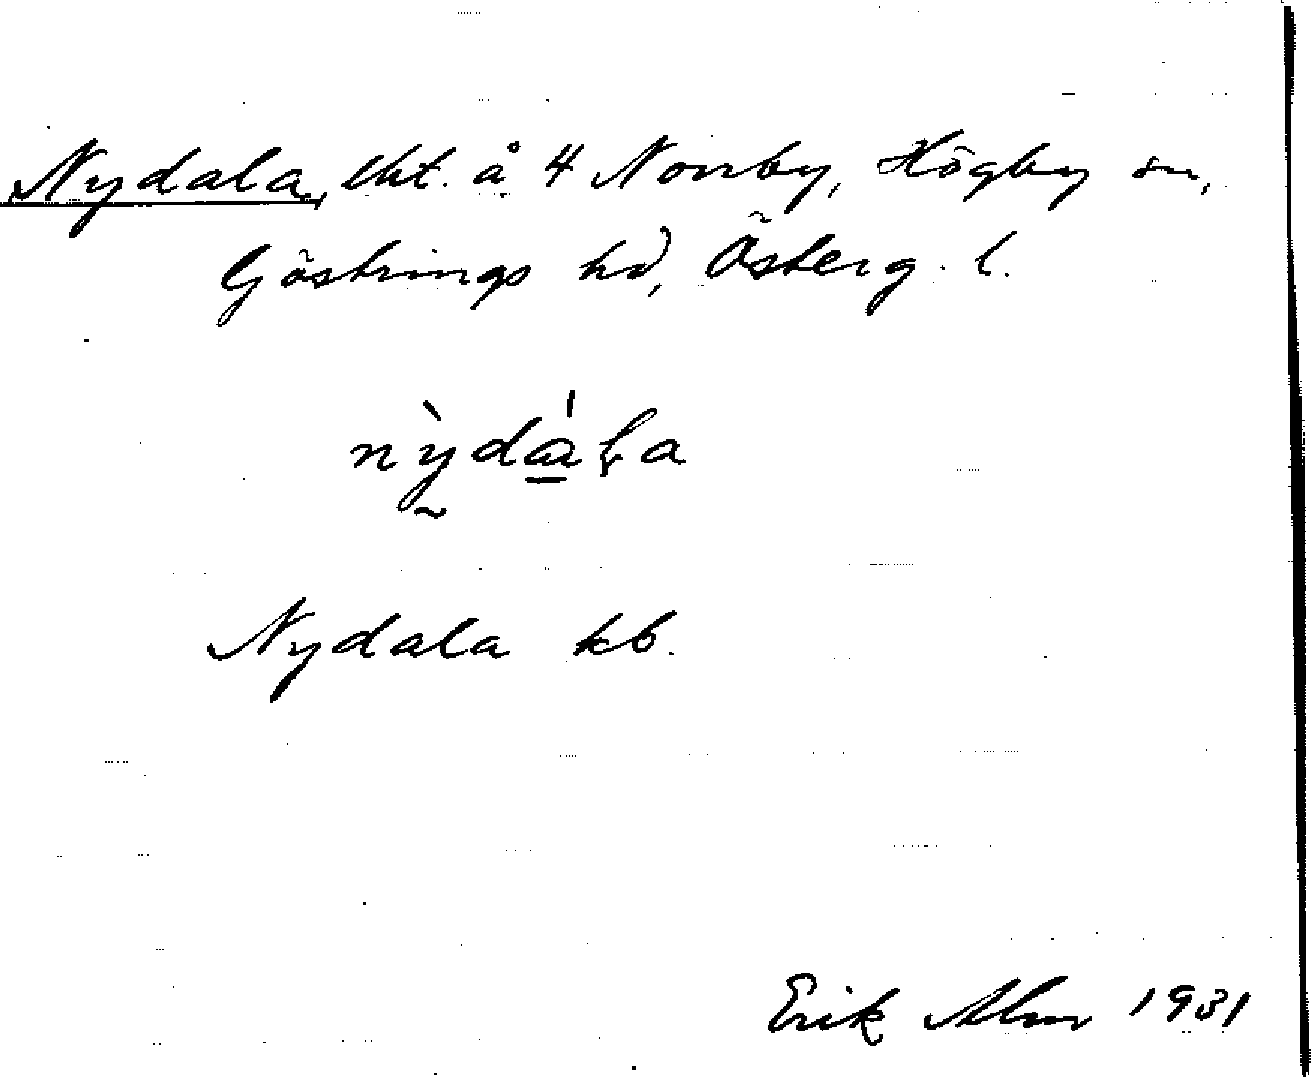 Nydala, lht. å 4 Norrby, Högby sn,
Göstrings hd, Österg. l.
nỳdáꞎa
Nydala kb.
Erik Alm 1931